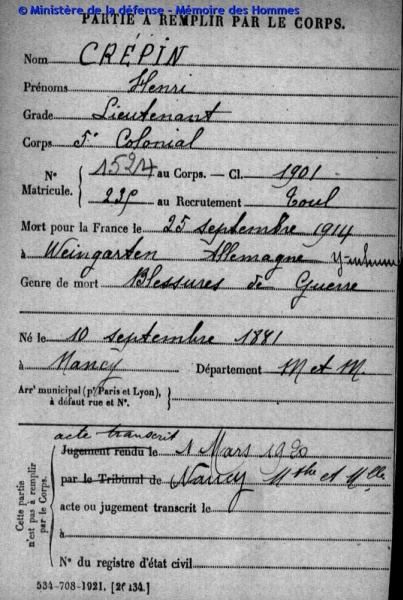 © Ministère de la défense - Mémoire des Hommes
PARTIE À REMPLIR PAR LE CORPS.
Nom CRÉPIN
Prénoms Henri
Grade Lieutenant
Corps 5e Colonial
N° Matricule. { 1527 au Corps. — Cl. 1901
235 au Recrutement Toul
Mort pour la France le 25 septembre 1914
à Weingarten Allemagne
Genre de mort Blessures de Guerre
Né le 10 septembre 1881
à Nancy Département M et M.
Arrt municipal (pr Paris et Lyon), à défaut rue et N°. }
Cette partie n'est pas à remplir par le Corps.
acte transcrit
Jugement rendu le 1 Mars 1920
par le Tribunal de Nancy Mthe et Mlle
acte ou jugement transcrit le
à
N° du registre d'état civil
534-708-1921. [26434.]